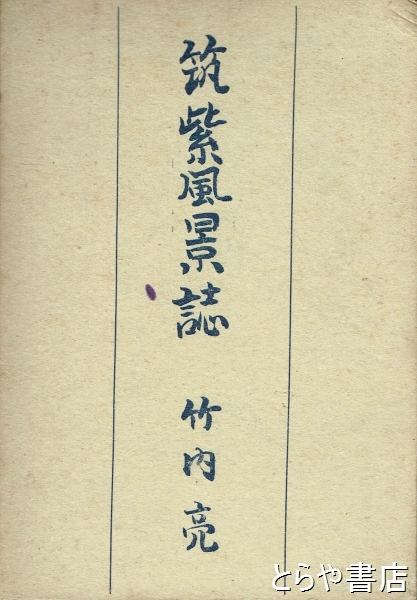 筑紫風景誌 竹内亮
とらや書店